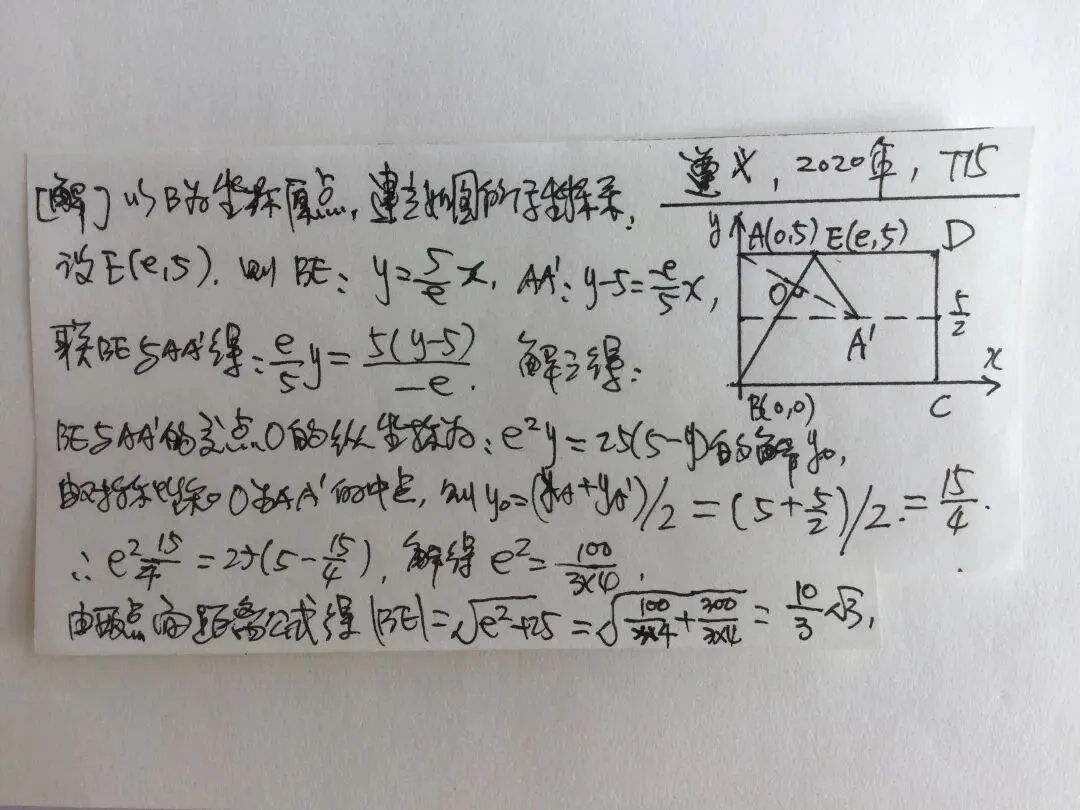 遵义, 2020年, T15
[解] 以B为坐标原点, 建立如图的行坐标系.
设E(e,5). 则 BE: y=5/e x, AA': y-5=-e/5 x,
联BE与AA'得: e/5 y = 5(y-5)/-e. 解之得:
BE与AA'的交点O的纵坐标为: e²y=25(5-y)的解y₀,
由对称性知O为AA'的中点, 则 y₀=(y_A+y_A')/2=(5+5/2)/2=15/4.
∴ e² 15/4 = 25(5-15/4), 解得 e²=100/3×4.
由两点间距离公式得 |BE|=√(e²+25)=√(100/3×4+300/3×4)=10/3 √3.
y A(0,5) E(e,5) D
O
5/2
A'
x
B(0,0) C